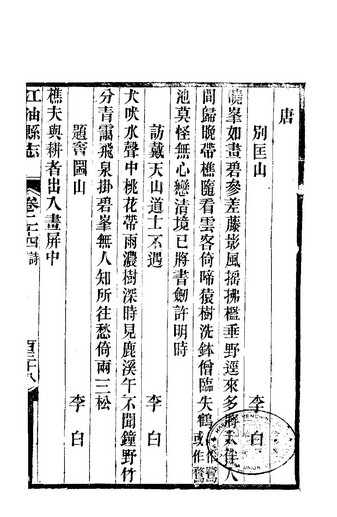 唐
別匡山 李白
曉峯如畫碧參差藤影風搖拂檻垂野逕來多將人
間歸晚帶樵隨看雲客倚啼猿樹洗鉢僧臨失鶴
池莫怪無心戀清境已將書劍許明時
訪戴天山道士不遇 李白
犬吠水聲中桃花帶雨濃樹深時見鹿溪午不聞鐘野竹
分青靄飛泉掛碧峯無人知所往愁倚兩三松
題竇圌山 李白
樵夫與耕者出入畫屏中
江油縣志 卷二十四 詩 百三十八